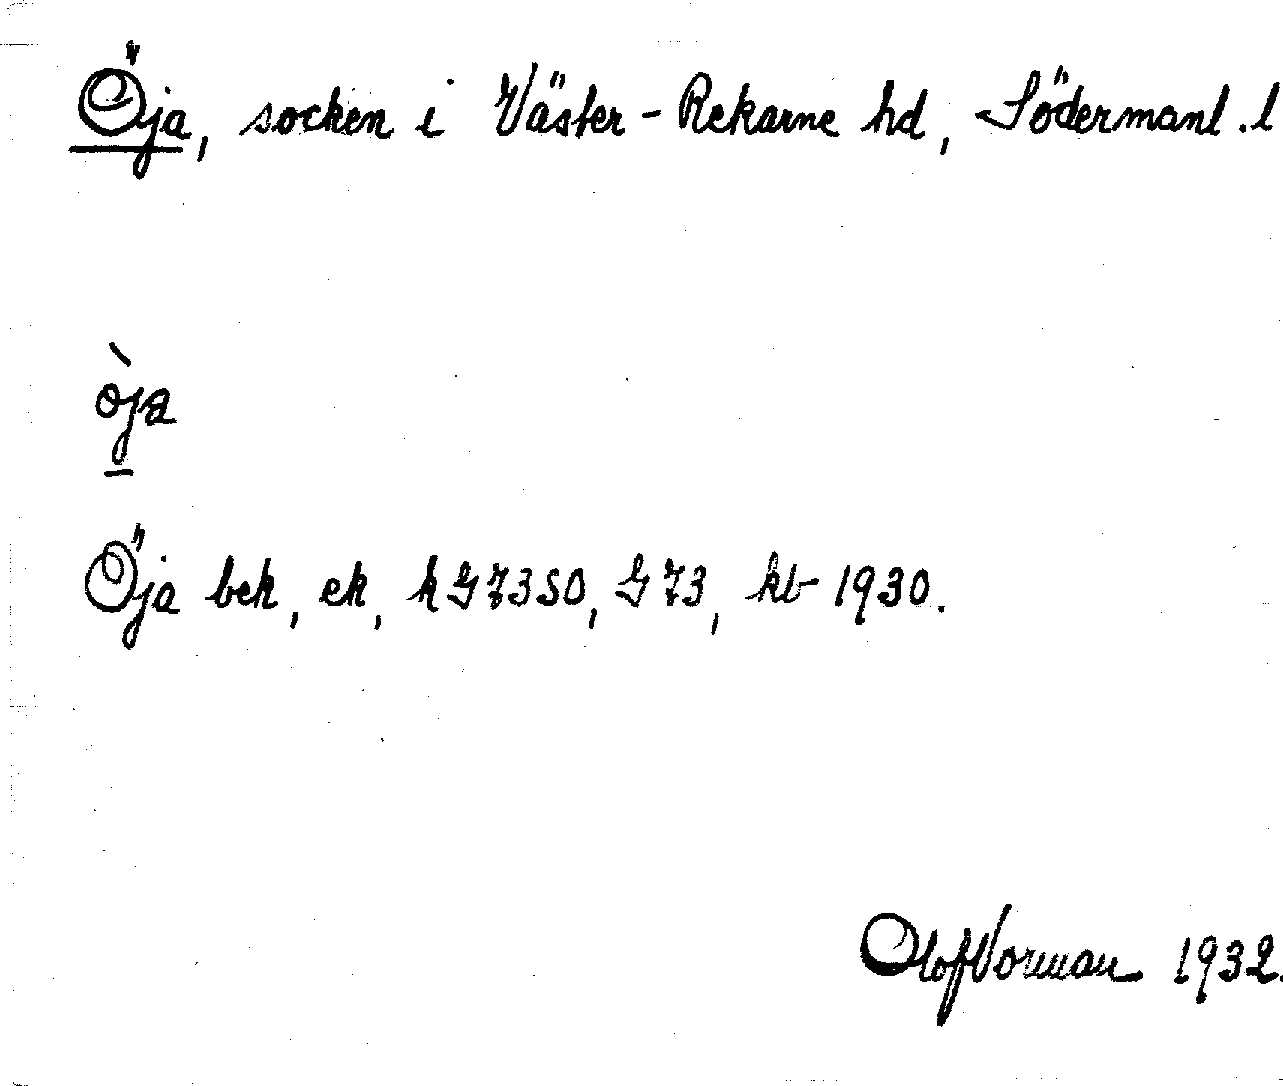 Öja, socken i Väster-Rekarne hd, Södermanl. l
ö̀ja
Öja bek, ek, k GZ350, GZ3, kb 1930.
Olof Vorman 1932.